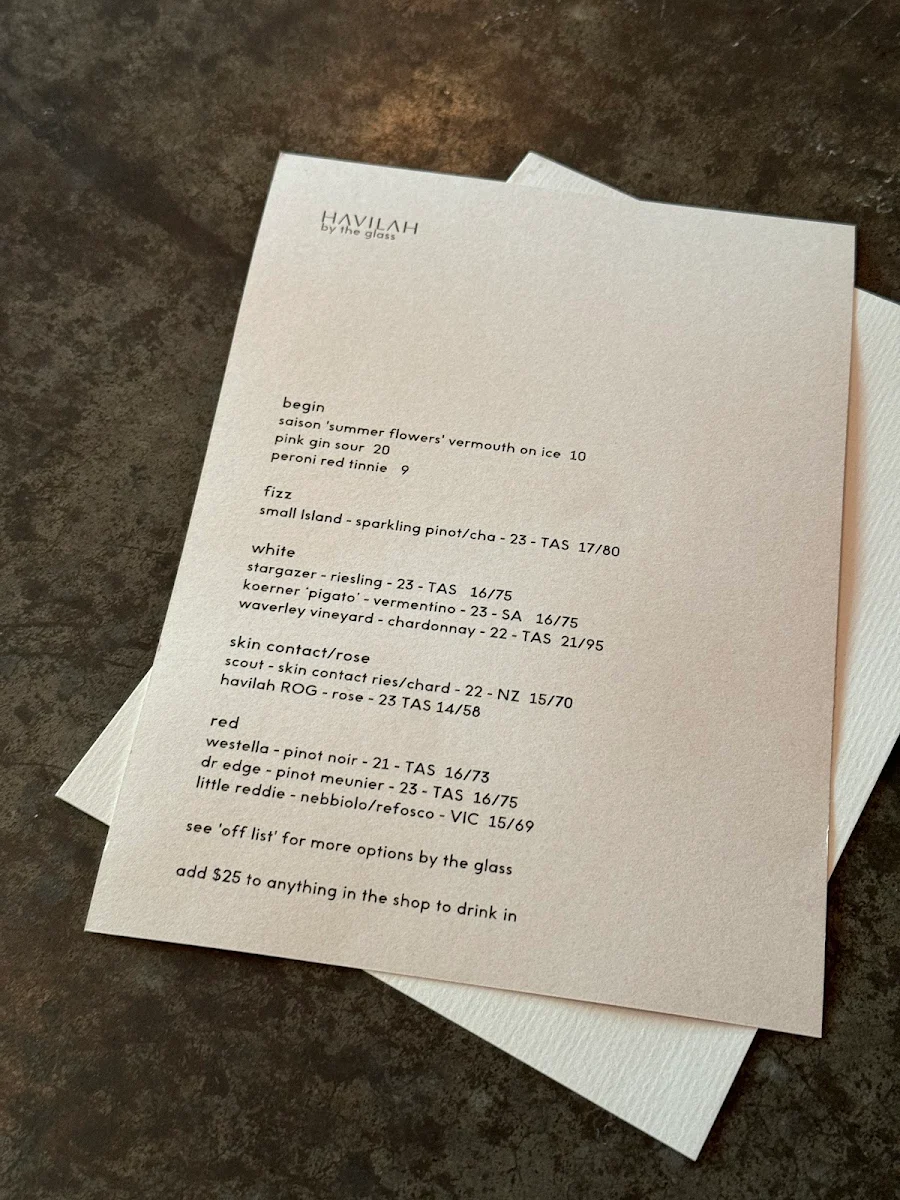 HAVILAH
by the glass
begin
saison 'summer flowers' vermouth on ice 10
pink gin sour 20
peroni red tinnie 9
fizz
small Island - sparkling pinot/cha - 23 - TAS 17/80
white
stargazer - riesling - 23 - TAS 16/75
koerner 'pigato' - vermentino - 23 - SA 16/75
waverley vineyard - chardonnay - 22 - TAS 21/95
skin contact/rose
scout - skin contact ries/chard - 22 - NZ 15/70
havilah ROG - rose - 23 TAS 14/58
red
westella - pinot noir - 21 - TAS 16/73
dr edge - pinot meunier - 23 - TAS 16/75
little reddie - nebbiolo/refosco - VIC 15/69
see 'off list' for more options by the glass
add $25 to anything in the shop to drink in